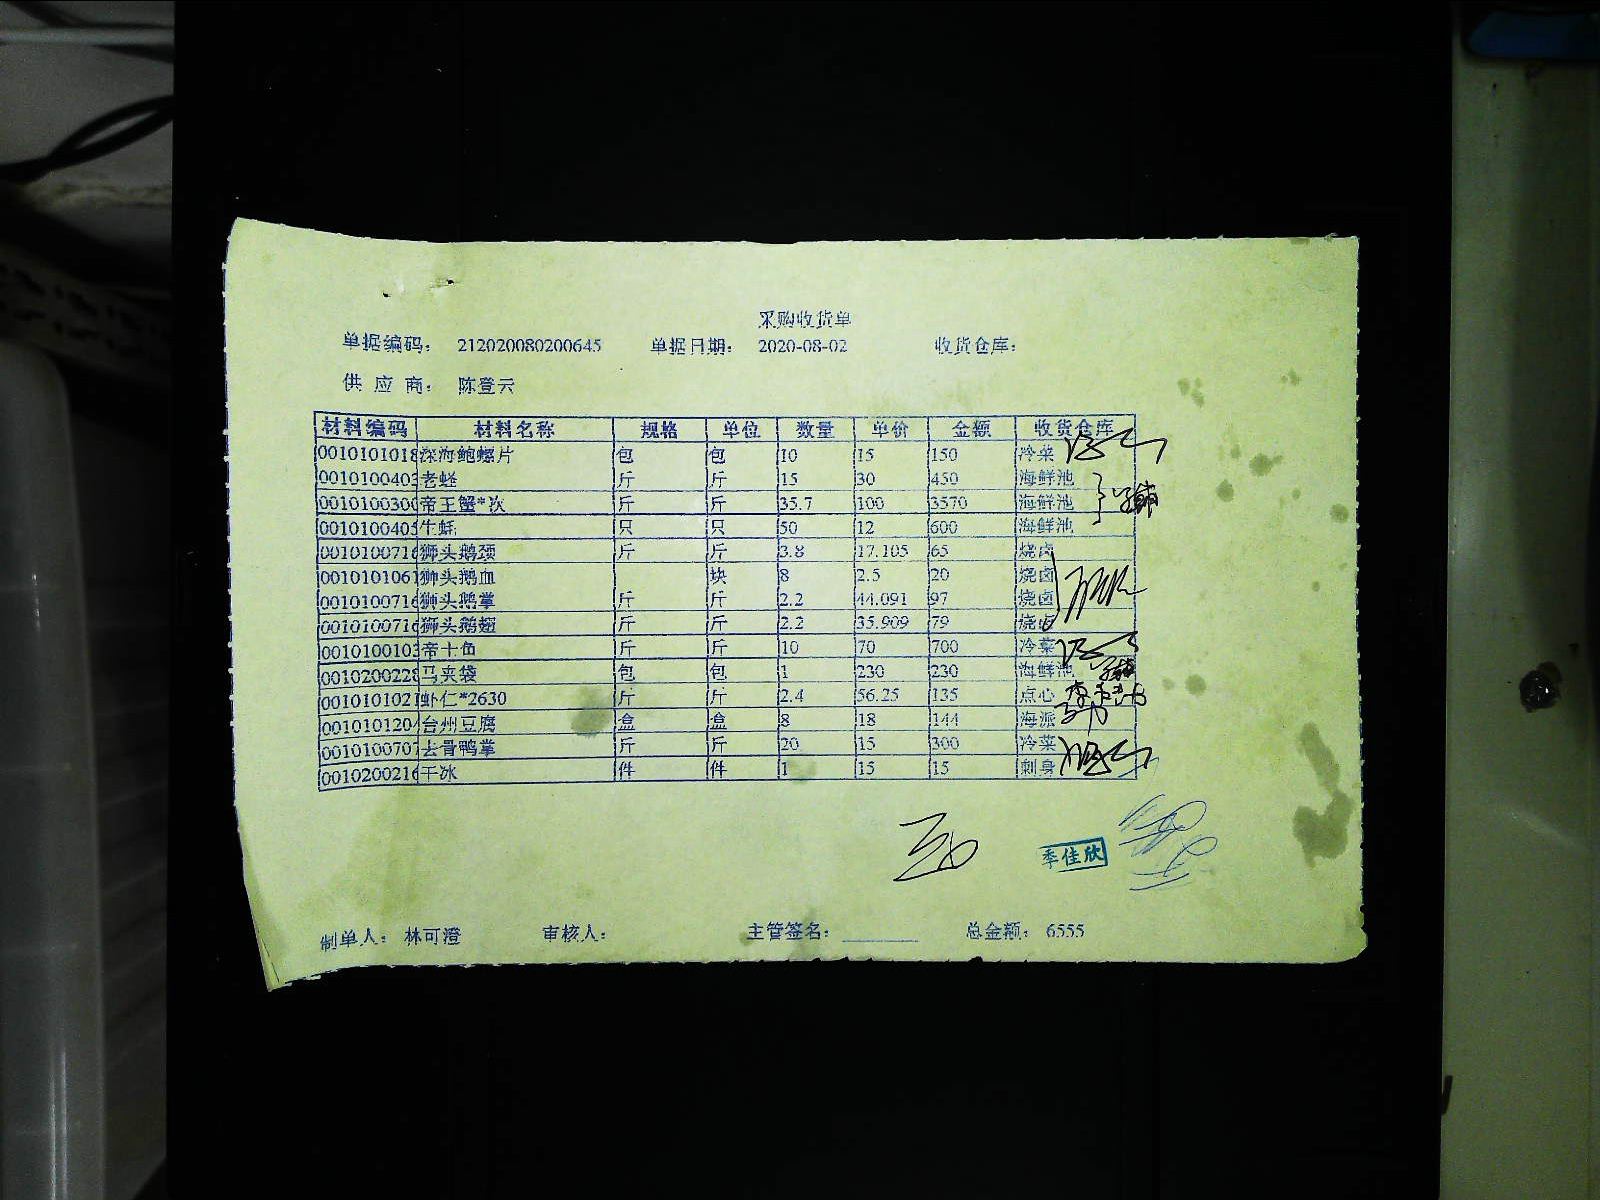 采购收货单
单据编码： 212020080200645 单据日期： 2020-08-02 收货仓库：
供 应 商： 陈登云
材料编码 材料名称 规格 单位 数量 单价 金额 收货仓库
0010101018 深海鲍螺片 包 包 10 15 150 冷菜
001010040 老蛏 斤 斤 15 30 450 海鲜池
001010030 帝王蟹*次 斤 斤 35.7 100 3570 海鲜池
001010040 牛蚝 只 只 50 12 600 海鲜池
001010071 狮头鹅颈 斤 斤 3.8 17.105 65 烧卤
001010106 狮头鹅血 块 8 2.5 20 烧卤
001010071 狮头鹅掌 斤 斤 2.2 44.091 97 烧卤
001010071 狮头鹅翅 斤 斤 2.2 35.909 79 烧卤
001010010 斤 斤 10 70 700 冷菜
001020022 马夹袋 包 包 1 230 230 海鲜池
001010102 虾仁*2630 斤 斤 2.4 56.25 135 点心
001010120 台州豆腐 盒 盒 8 18 144 海派
001010070 去骨鸭掌 斤 斤 20 15 300 冷菜
001020021 干冰 件 件 1 15 15 刺身
季佳欣
制单人： 林可澄 审核人： 主管签名： 总金额： 6555